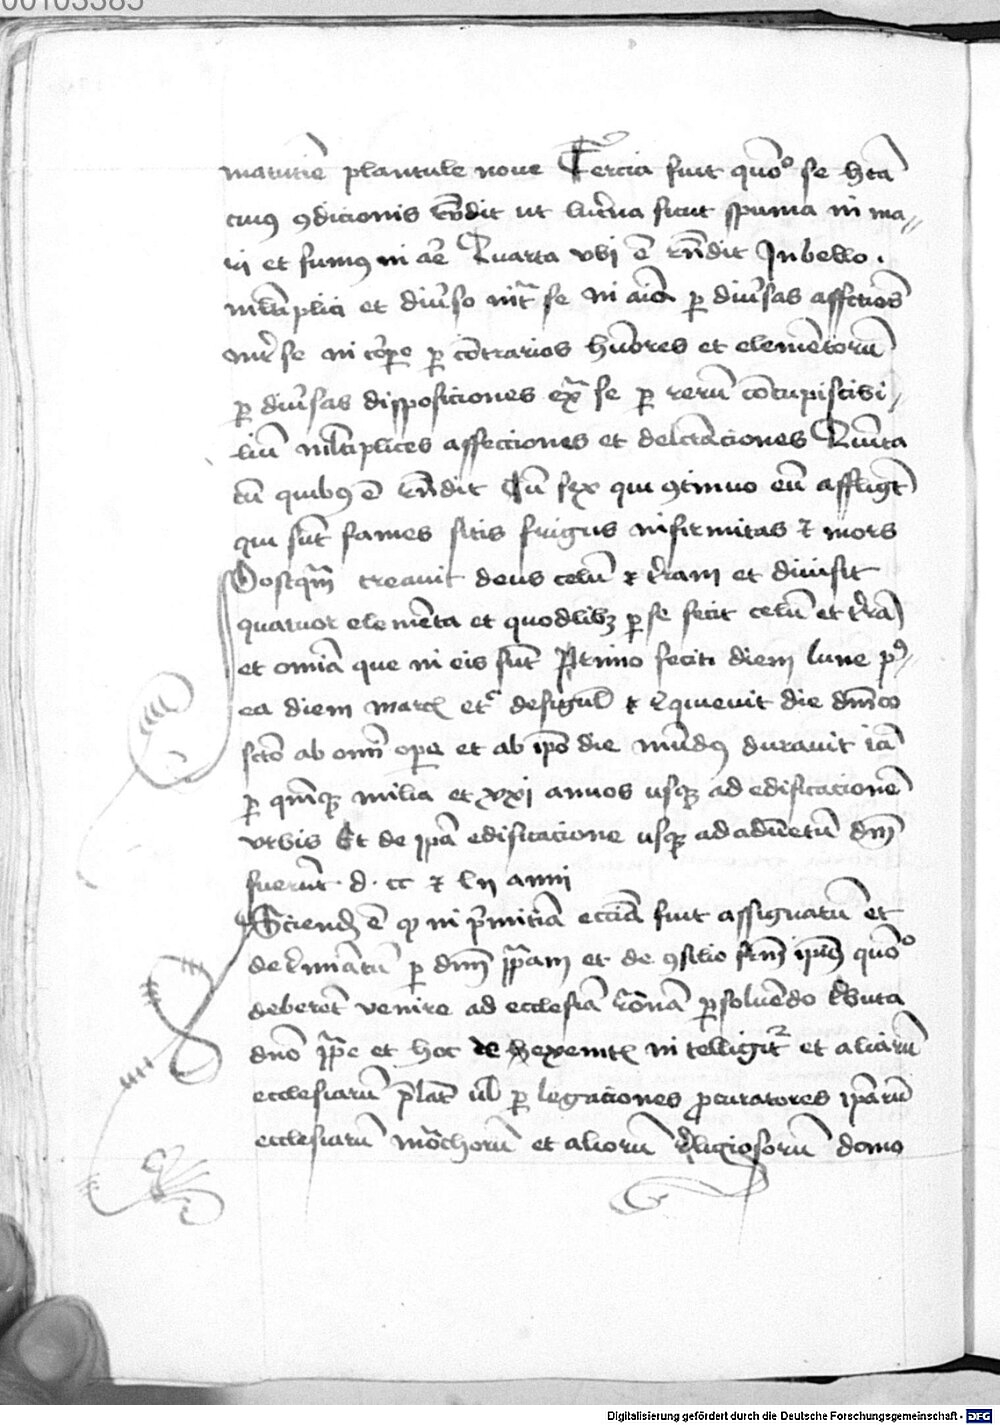 00103385
matutine plantule nove Tercia fuit quomodo se h̄ta
cuius 9dicionis r̄ndit ut lucerna sicut spuma in ma-
ri et fumus in aere Quarta ubi e r̄ndit In bello
multiplici et diuso intra se in aīa p diuersas affcīones
intra se in corpe p contrarios humores et elementorum
p diuersas dispposiciones extra se p rerum concupiscibi-
lium multiplices affecciones et delectaciones Quinta
cum quibus e r̄ndit Cum sex qui 9tinuo eum affligt
qui sunt fames sitis frigus infirmitas et mors
Postquam creavit deus celum et terram et divisit
quatuor elementa et quodlibet per se fecit celum et terram
et omnia que in eis sunt Primo fecit diem lune post-
ea diem martis etc de singul et requievit die dominico
sancto ab omni opere et ab ipso die mundus duravit iam
per quinque milia et xxi annos usque ad edificacionem
urbis Et de ipsa edificacione usque ad adventum domini
fuerunt d cc et lii anni
Sciendum e quod in primitiva ecclesia fuit assignatum et
determinatum per dominum papam et de 9silio fratrum ipsius quomodo
deberent venire ad ecclesiam romanam persolvendo tributa
domino pape et hoc de exemtis intelligitur et aliarum
ecclesiarum prelatis vel per legaciones procuratores ipsarum
ecclesiarum monachorum et aliorum religiosorum domo
Digitalisierung gefördert durch die Deutsche Forschungsgemeinschaft - DFG